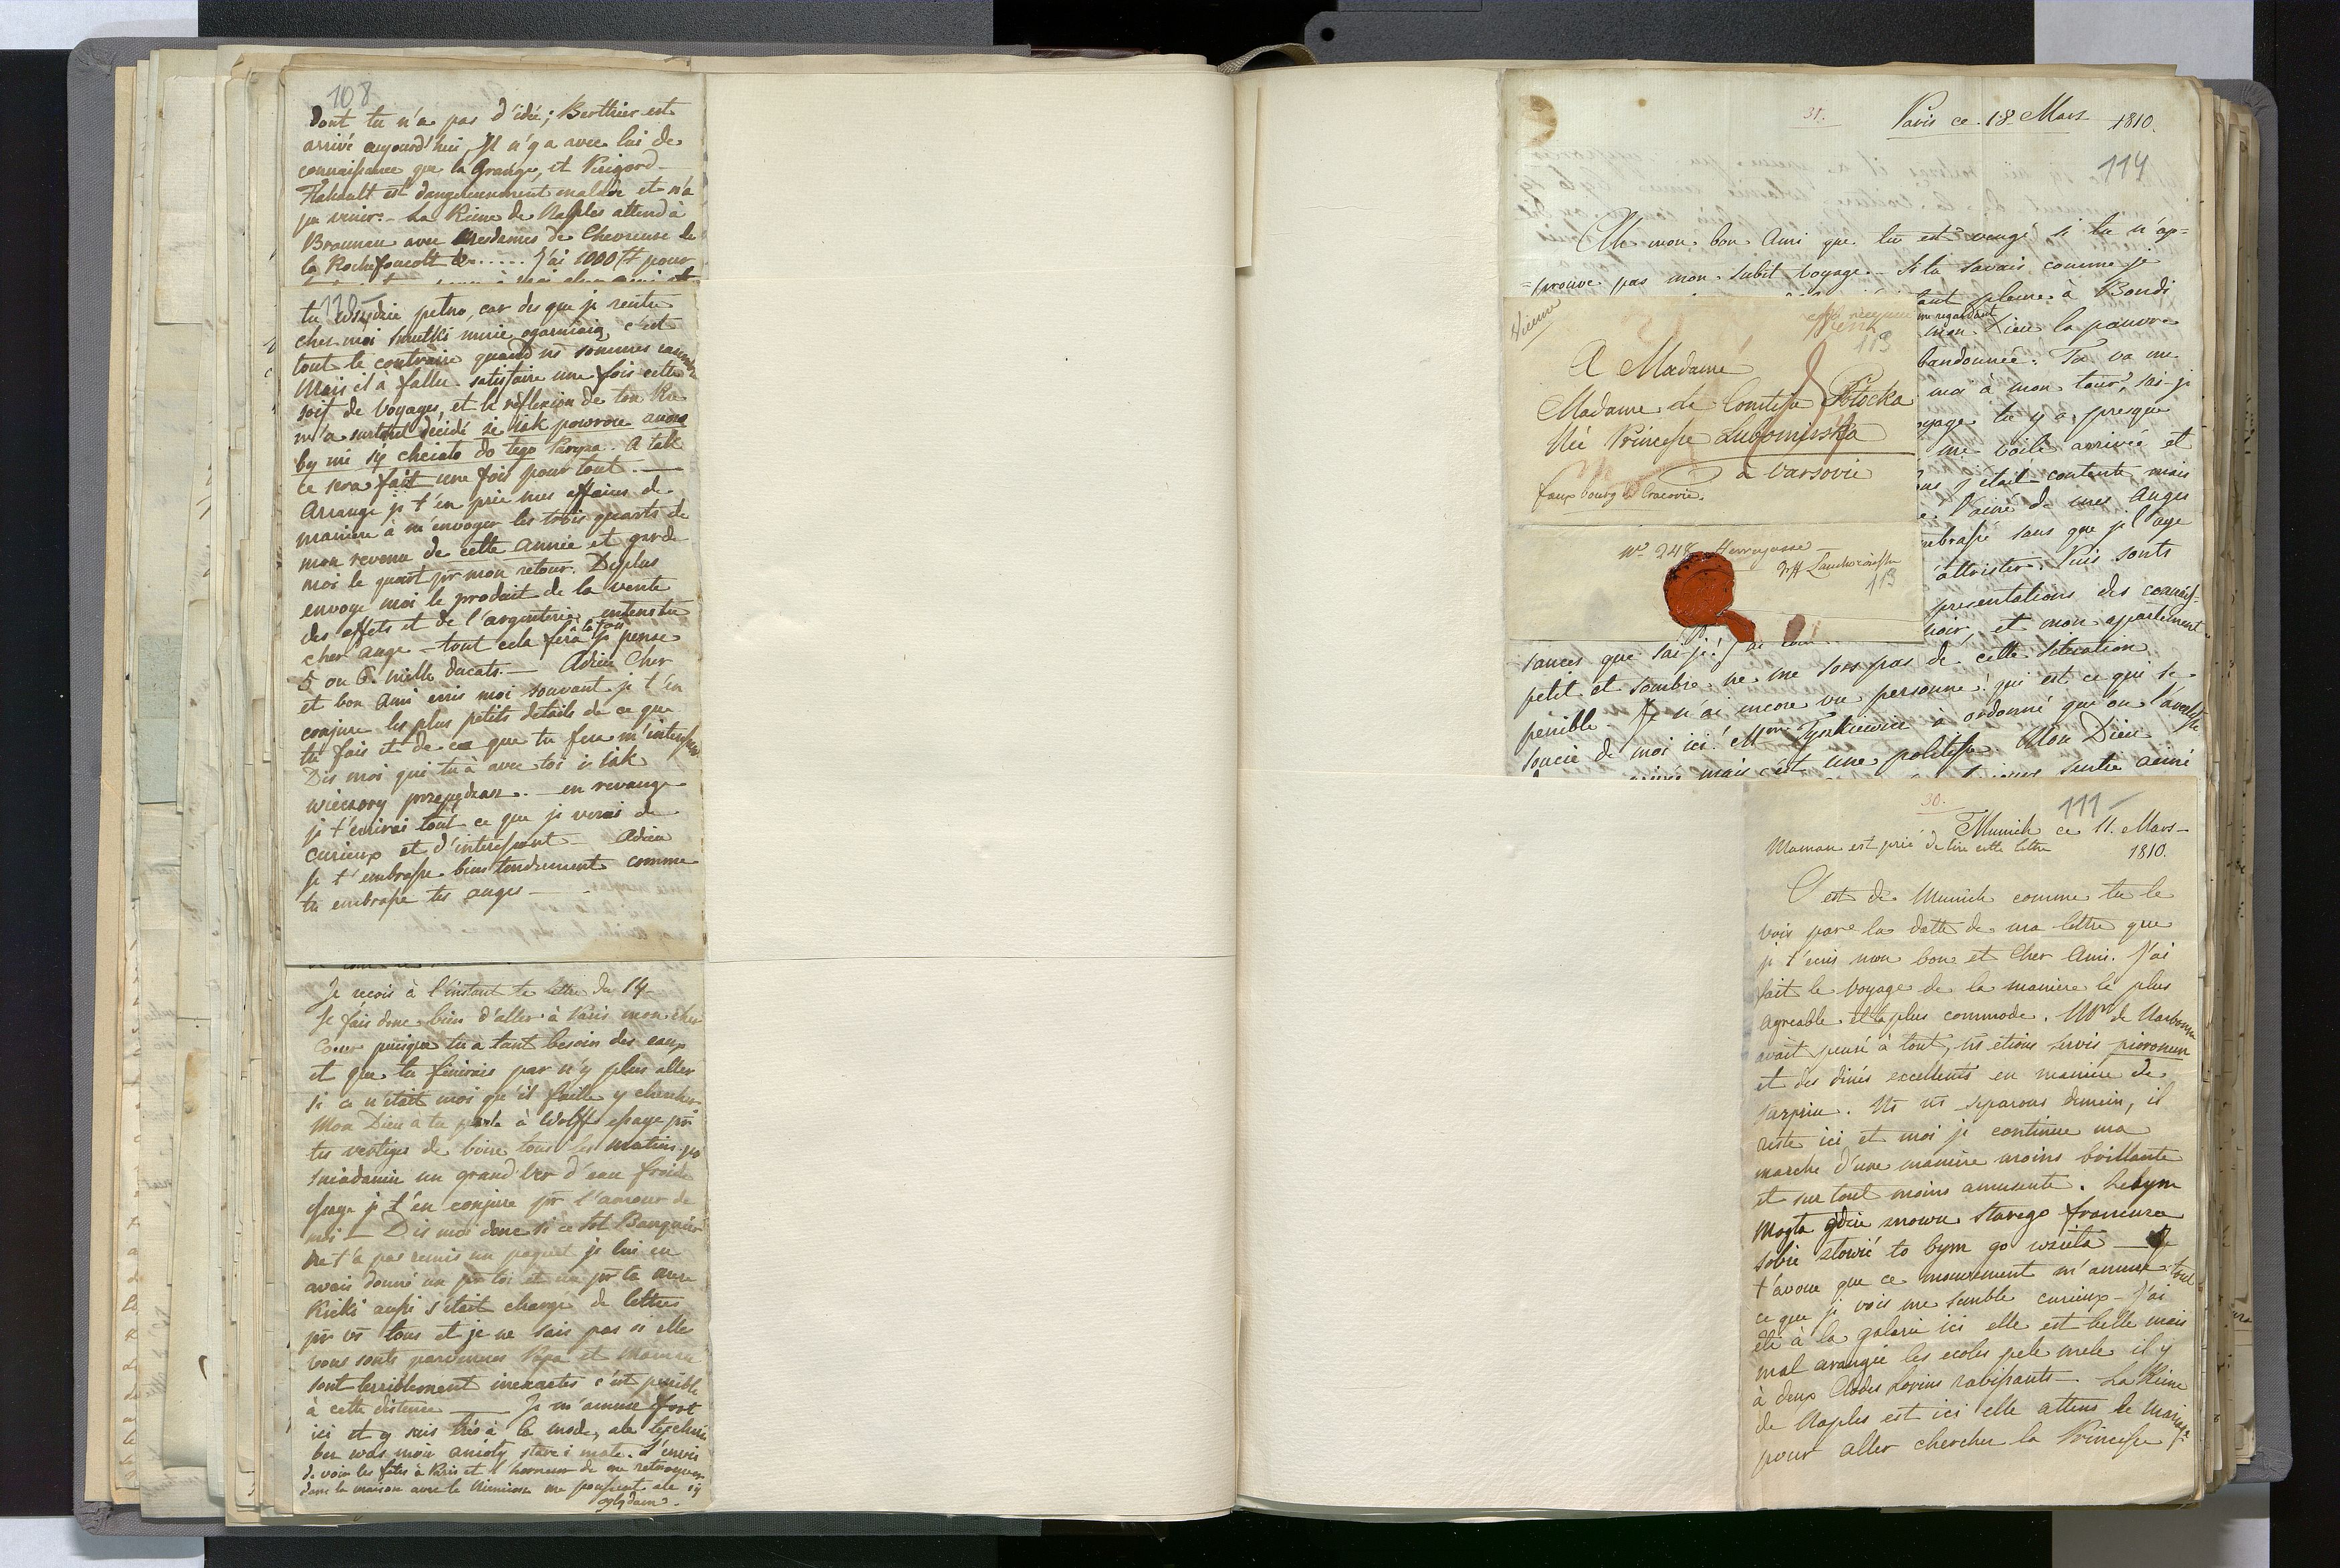 108
dont tu n'a pas d'idée; Berthier est
arrivé aujourd'hui, Il n'y a avec lui de
connaissance que la Grange, et Perigord
Flahault est dangereusement malade et n'a
pu venir. - La Reine de Naples attend à
Braunau avec Mesdames de Chevreuse de
la Rochefoucolt &...... J'ai 1000 # pour
110
tu wszędzie pełno, car des que je rentre
chez moi smutki mnie ogarniaią, c'est
tout le contraire quand ns sommes
Mais il à fallu satisfaire une fois cette
soif de voyages, et la reflexion de ton
m'a surtout decidé że iak powrocę
by mi się chciało do tego Paryża. A tak
ce sera fait une fois pour tout. —
Arrange je t'en prie mes affaires de
maniere à m'envoyer les trois quarts de
mon revenu de cette année et garde
moi le quart pr mon retour. Deplus
envoye moi le produit de la vente
des effets et de l'argenterie, entens tu
cher ange - tout cela fera je pense
5 ou 6. mille ducats. — Adieu Cher
et bon Ami ecris moi souvant je t'en
conjure les plus petits details de ce que
tu fais et de ce que tu fera
Dis moi qui tu à avec toi i iak
wieczory przepędzasz. - en revange
je t'ecrirai tout ce que je verai de
curieux et d'interessant - Adieu
Je t'embrasse bien tendrement comme
tu embrasse tes anges —
Je recois à l'instant te lettre du 14
Je fais donc bien d'aller à Paris mon cher
Coeur puisque tu a tant besoin des eaux
et que tu finirais par n'y plus aller
si ce n'était moi qu'il faille y chercher
Mon Dieu à tu parlé à Wolff essaye pr
tes vertiges de boire tous les matins po
sniadaniu un grand ver d'eau froide
essaye je t'en conjure pr l'amour de
moi — Dis moi donc si ce sot Banquier
ne t'à pas remis un paquet je lui en
avais donné un pr toi et un pr ta mere
Kicki aussi s'était chargé de lettres
pr vs tous et je ne sais pas si elles
vous sonts parvenues Papa et Maman
sont terriblement inexactes c'est penible
à cette distence — Je m'amuse fort
ici et y suis très à la mode, ale
bez was moie anioły stare i małe. L'envie
de voir les fêtes à Paris et l'horreur de me retrouver
dans la maison avec le me poussent ale się
oglądam.
31. Paris ce 18 Mars 1810.
114
Ah mon bon Ami que tu est vengé si tu n'ap=
=prouve pas mon subit voyage. Si tu savais comme je
tant pleuré à Bondi
me regardant
mon Dieu la pauvre
bandonnée. Tu va me
moi à mon tour, sai-je
oyage tu y a presque
me voile arrivée et
j'était contente mais
l'ainé de mes Anges
embrassé sans que je l'aye
attrister. Puis sonts
presentations des connais-
noir, et mon apartement
Vienne
113
A Madame
Madame la Comtesse Potocka
Née Princesse Lubomirska
à Varsovie
faux bourg de Cracovie.
No 248 Herrngasse
113
sances que sai-je! J'ai
petit et sombre ne me sors pas de cette situation
penible - Je n'ai encore vu personne! qui est ce qui se
soucie de moi ici! Mme Tyszkiewicz à ordonné que on l'avertisse
mais c'est une politesse. Mon Dieu
30. 111
Munich ce 11. Mars
1810.
Maman est prié de lire cette lettre
C'est de Munich comme tu le
vois par la datte de ma lettre que
je t'ecris mon bon et Cher Ami. J'ai
fait le voyage de la maniere la plus
agreable et la plus commode. Mr de Narbonne
avait pensé à tout, ns etions servis piorunem
et des dinés excellents en maniere de
surprise. Ns ns separons demain, il
reste ici et moi je continue ma
marche d'une maniere moins brillante
et sur tout moins amusante. Żebym
mogła gdzie znowu starego francuza
sobie złowić to bym go wzieła — Je
t'avoue que ce mouvement m'amuse tout
ce que je vois me semble curieux - J'ai
été à la galerie ici elle est belle mais
mal arangée les ecoles pele mele il y
à deux Claudes Lorins ravissants - La Reine
de Naples est ici elle attens le mariage
pour aller chercher la Princesse